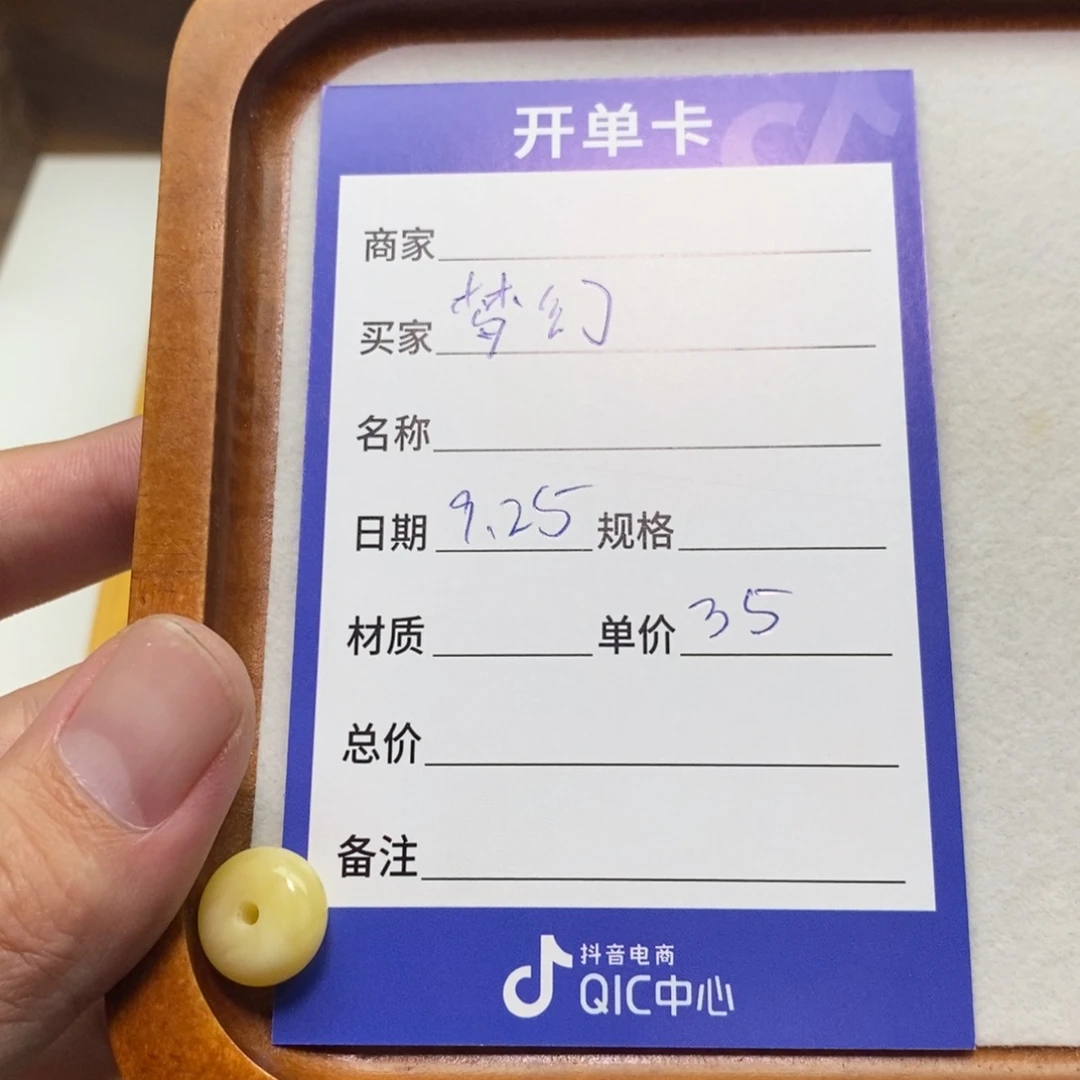 开单卡
商家
买家 梦幻
名称
日期 9.25 规格
材质 单价 35
总价
备注
抖音电商
QIC中心